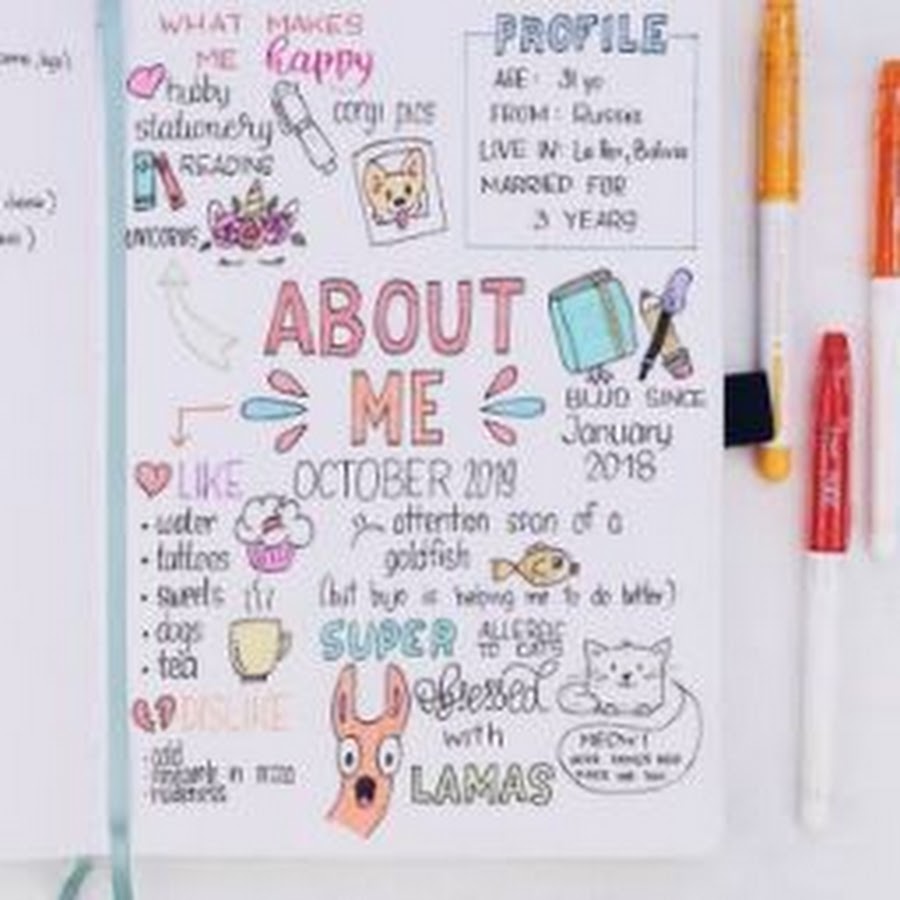 WHAT MAKES
ME happy
hubby
stationery
corgi pics
READING
UNICORNS
PROFILE
AGE: 31 yo
FROM: Russia
LIVE IN: La Paz, Bolivia
MARRIED FOR
3 YEARS
ABOUT
ME
BUJO SINCE
January
2018
OCTOBER 2019
LIKE
• water
• tattoos
• sweets
• dogs
• tea
attention span of a
goldfish
(but bujo is helping me to do better)
SUPER ALLERGIC
TO CATS
obsessed
with
LAMAS
MEOW!
DISLIKE
• cold
in
• rudeness